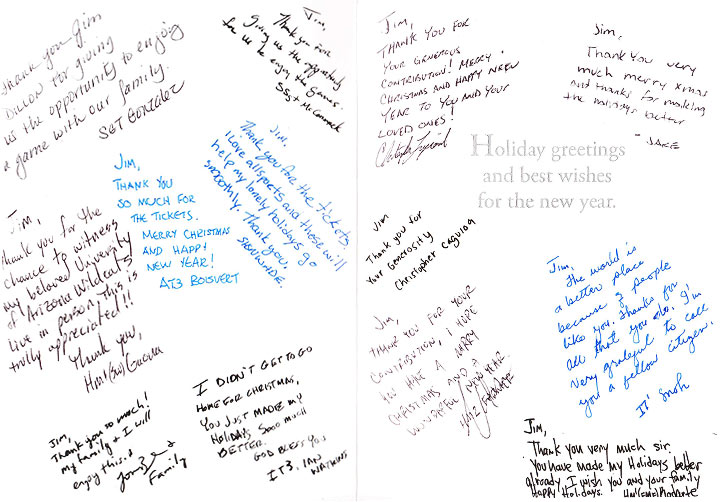 Thank you Jim
DILLON for giving
us the opportunity to enjoy
a game with our family.
SGT Gonzalez
Jim,
Thank you for
Giving us the opportunity
for us to enjoy the Games.
SSgt McCormack
JIM,
THANK YOU
SO MUCH FOR
THE TICKETS.
MERRY CHRISTMAS
AND HAPPY
NEW YEAR!
AT3 BOISVERT
Jim,
Thank you for the tickets
I love all sports and these will
help my lonely holidays go
smoothly. Thank you,
Jim,
Thank you for the
chance to witness
my beloved University
of Arizona Wildcats
live in person, this is
trully appreciated!!
Thank you,
Jim,
Thank you so much!
my family & I will
enjoy this.
Family
I DIDN'T GET TO GO
HOME FOR CHRISTMAS,
YOU JUST MADE MY
HOLIDAYS Sooo much
BETTER.
GOD BLESS YOU
IT3. IAN WATKINS
JIM,
THANK YOU FOR
YOUR GENEROUS
CONTRIBUTION! MERRY
CHRISTMAS AND HAPPY NEW
YEAR TO YOU AND YOUR
LOVED ONES!
Jim,
Thank you very
much merry xmas
and thanks for making
the
- JAKE
Holiday greetings
and best wishes
for the new year.
Jim
Thank you for
Your Generosity
Christopher Caguioa
Jim,
THANK YOU FOR YOUR
CONTRIBUTION, I HOPE
YOU HAVE A MERRY
CHRISTMAS AND A
WONDERFUL NEW YEAR.
Jim,
The world is
a better place
because of people
like you. Thanks for
all that you do. I'm
very grateful to call
you a fellow citizen.
Jim,
Thank you very much sir.
You have made my Holidays better
already, I wish you and your family
Happy Holidays!